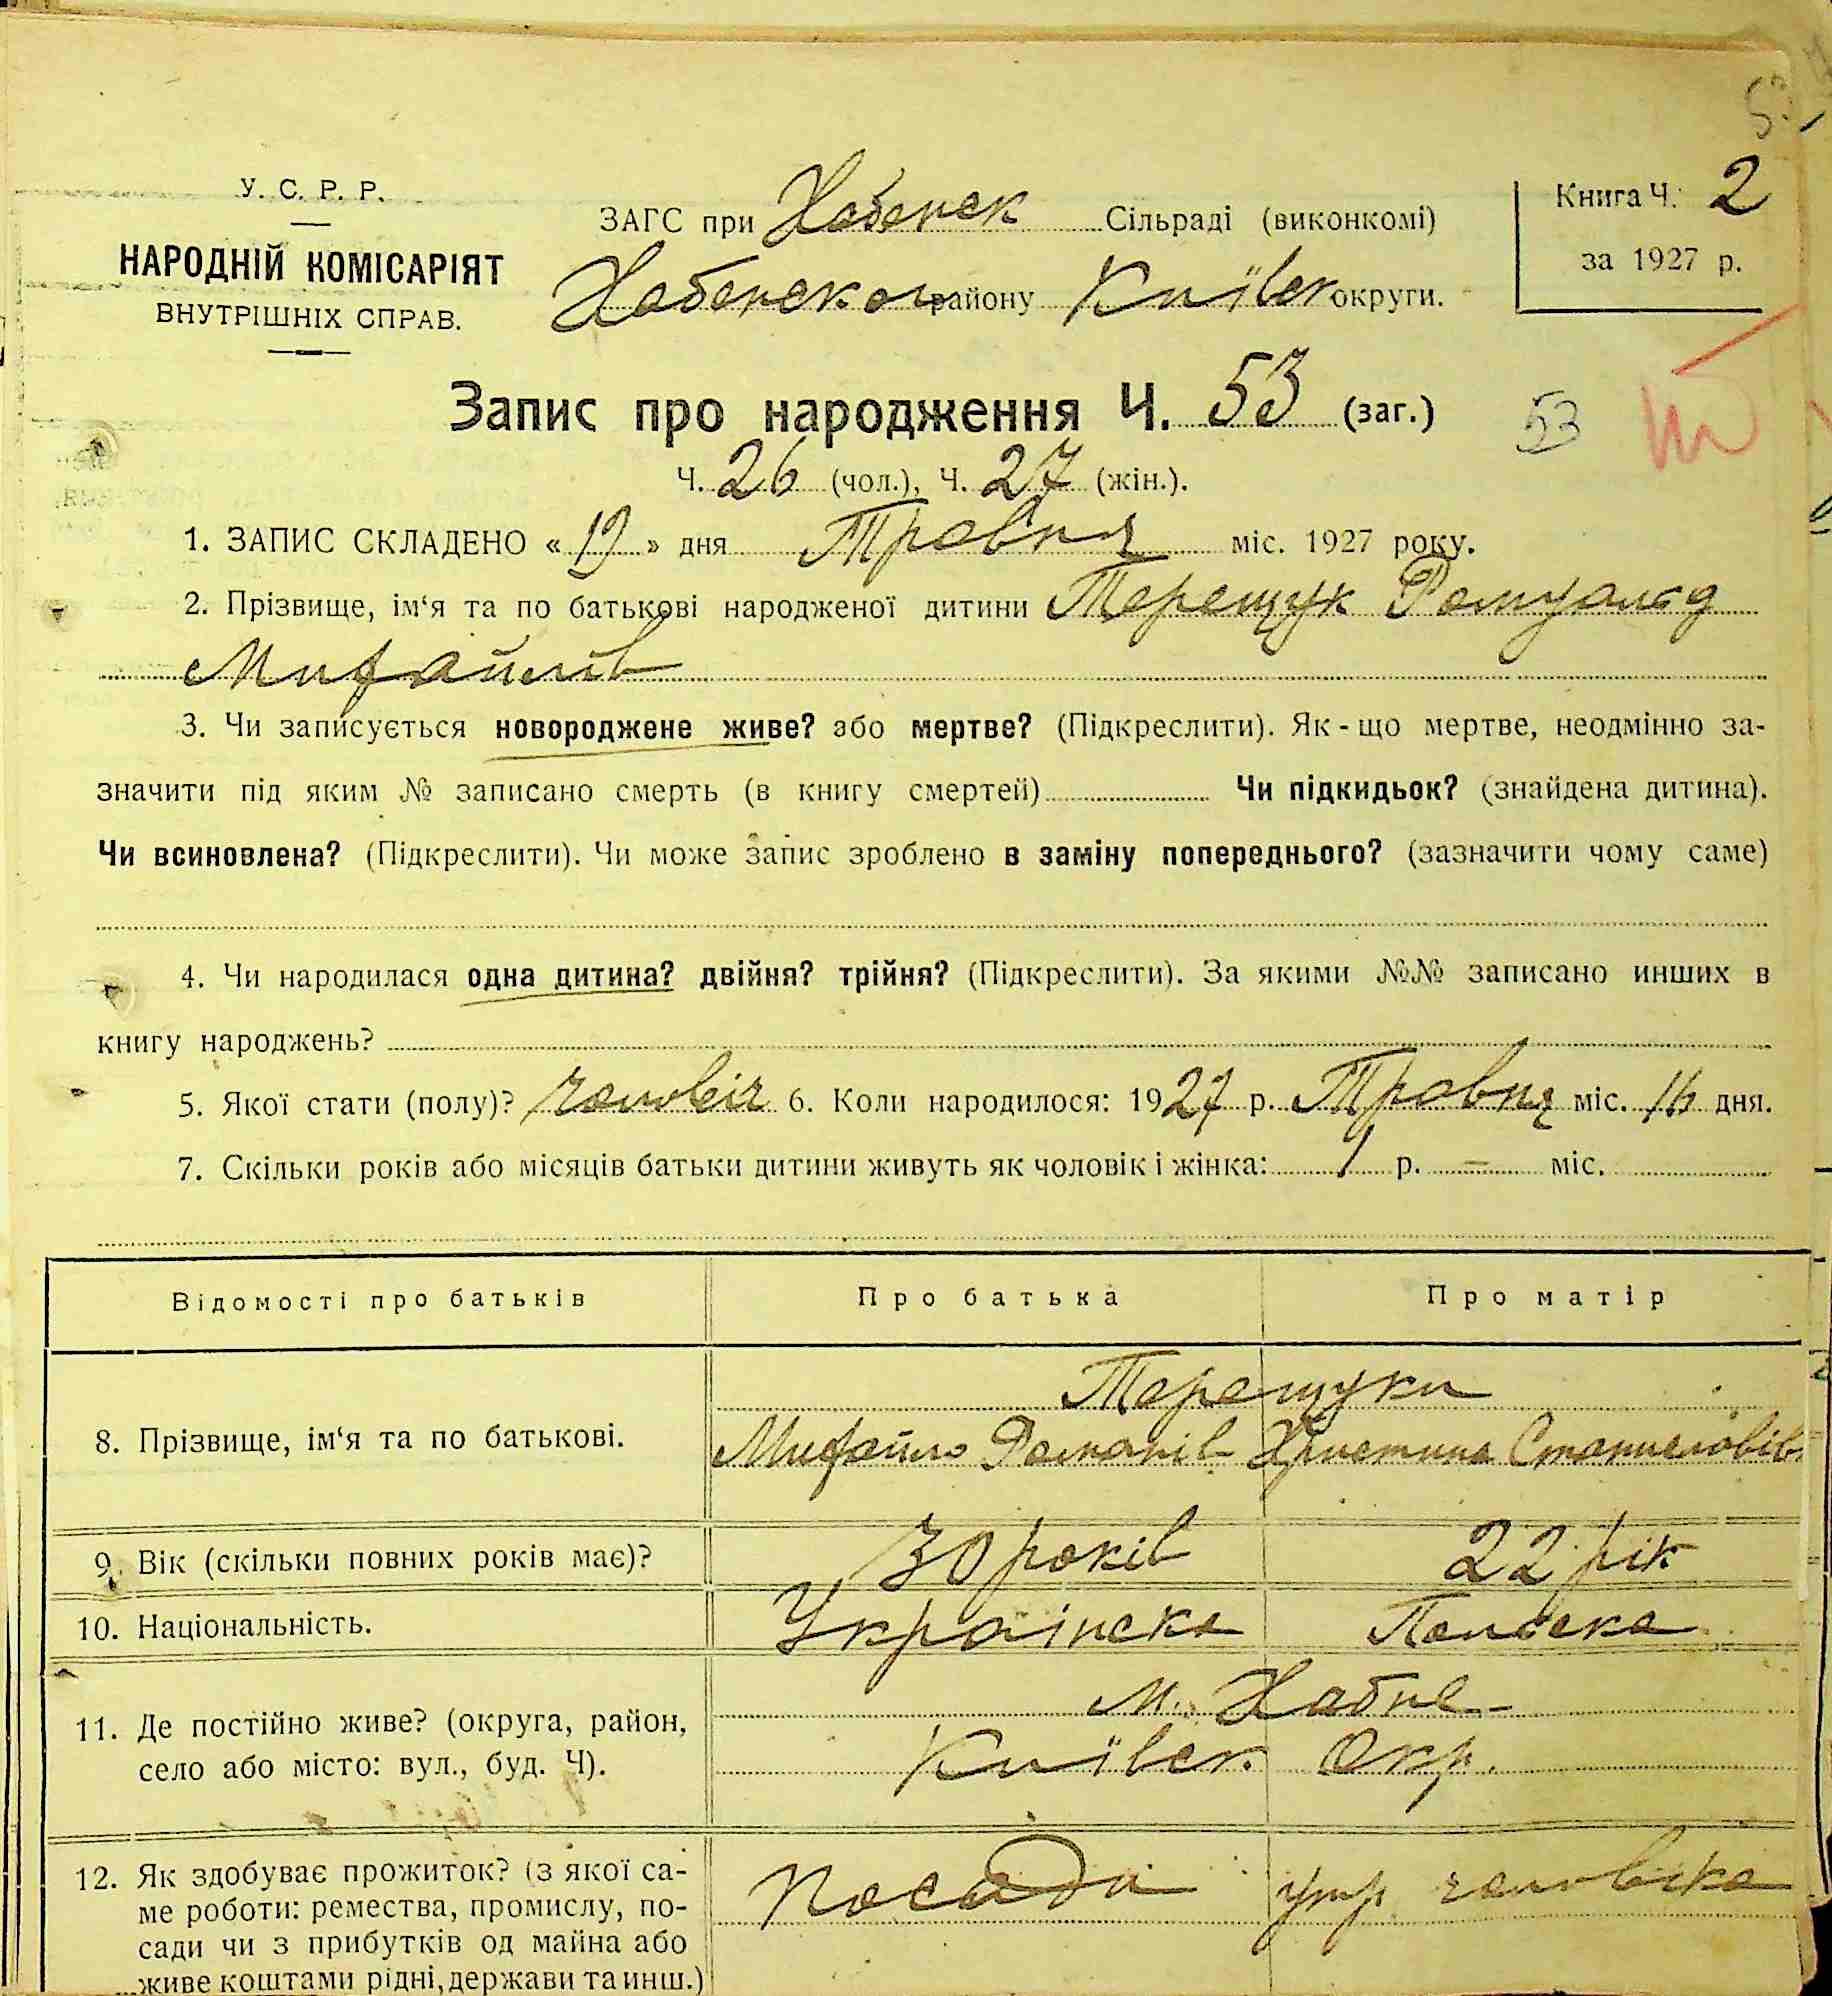 У. С. Р. Р.
НАРОДНІЙ КОМІСАРІЯТ
ВНУТРІШНІХ СПРАВ.
ЗАГС при Хабенск Сільраді (виконкомі)
Хабенског району Київськ округи.
Книга Ч. 2
за 1927 р.
Запис про народження Ч. 53 (заг.) 53
Ч. 26 (чол.), Ч. 27 (жін.).
1. ЗАПИС СКЛАДЕНО «19» дня Травня міс. 1927 року.
2. Прізвище, ім‘я та по батькові народженої дитини Терещук Ромуальд
Михайлів
3. Чи записується новороджене живе? або мертве? (Підкреслити). Як-що мертве, неодмінно за-
значити під яким № записано смерть (в книгу смертей) Чи підкидьок? (знайдена дитина).
Чи всиновлена? (Підкреслити). Чи може запис зроблено в заміну попереднього? (зазначити чому саме)
4. Чи народилася одна дитина? двійня? трійня? (Підкреслити). За якими №№ записано инших в
книгу народжень?
5. Якої стати (полу)? чоловіч 6. Коли народилося: 1927 р. Травня міс. 16 дня.
7. Скільки років або місяців батьки дитини живуть як чоловік і жінка: 1 р. – міс.
Відомості про батьків Про батька Про матір
8. Прізвище, ім‘я та по батькові. Терещуки
Михайло Романів Христина Станиславів
9. Вік (скільки повних років має)? 30 років 22 рік
10. Національність. Українска Польска
11. Де постійно живе? (округа, район,
село або місто: вул., буд. Ч).
м. Хабне
Київск. Окр.
12. Як здобуває прожиток? (з якої са-
ме роботи: ремества, промислу, по-
сади чи з прибутків од майна або
живе коштами рідні, держави та инш.)
посади утр. чоловіка